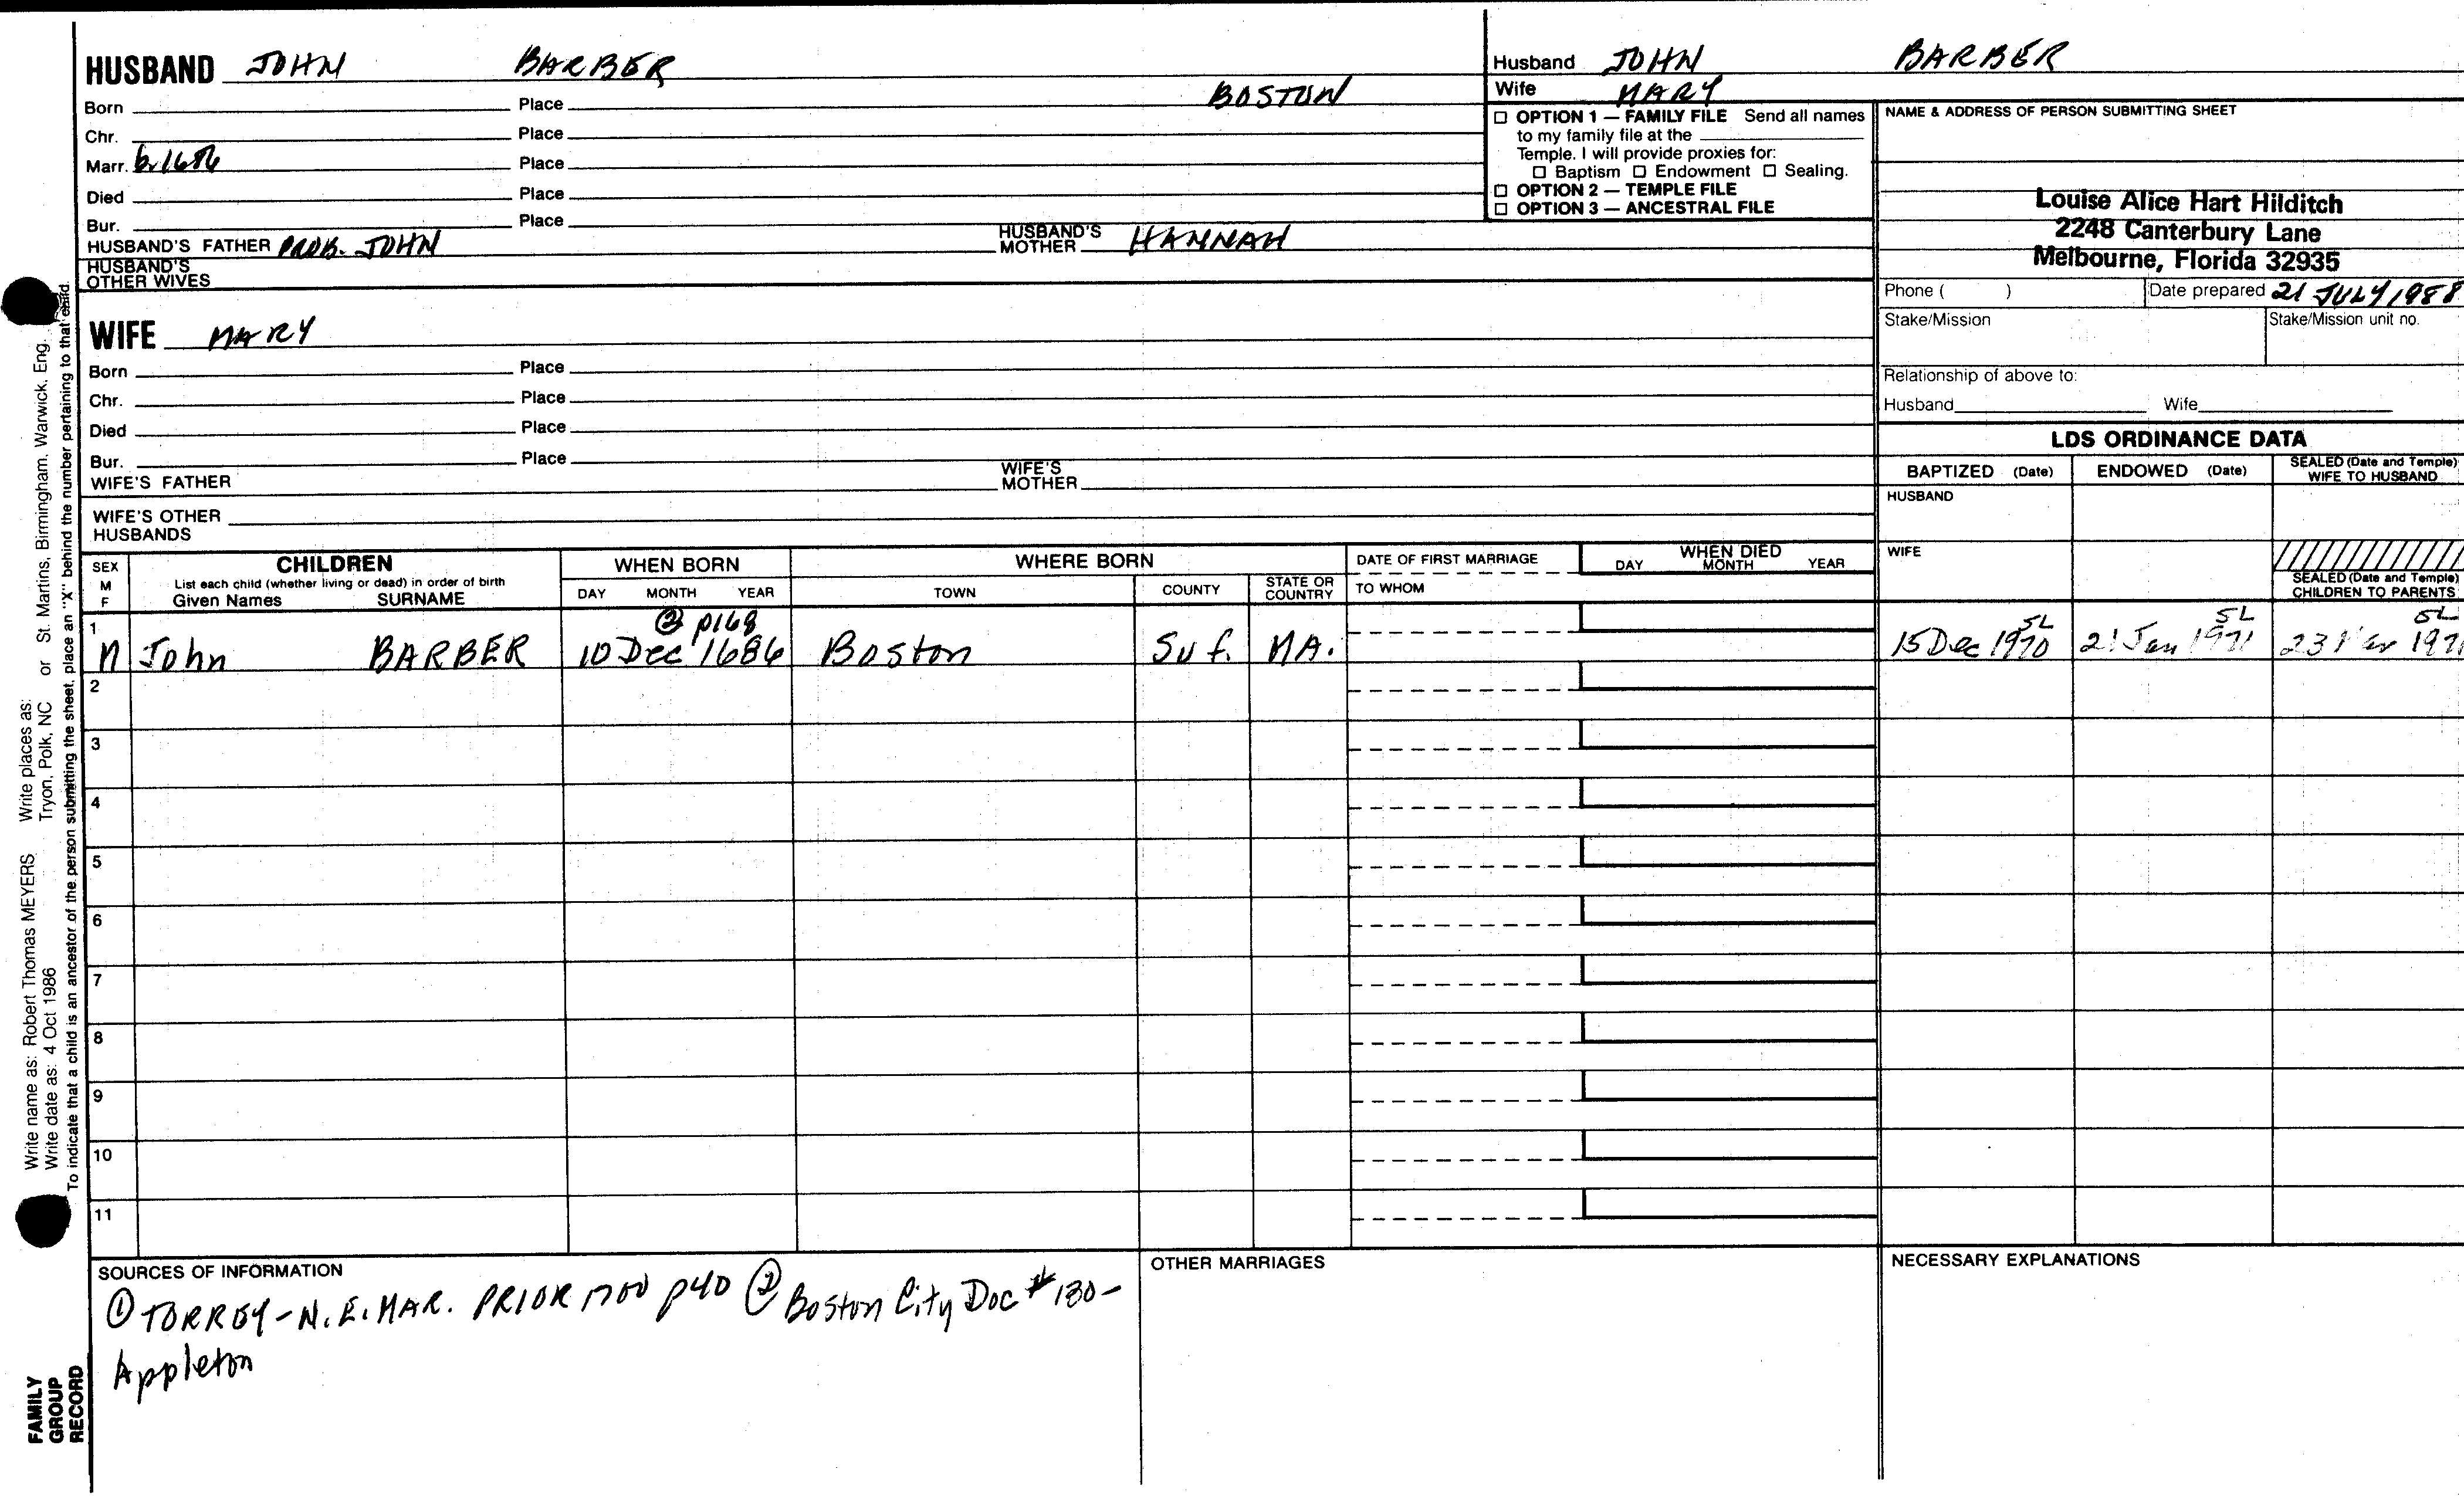 HUSBAND JOHN BARBER
Born Place BOSTON
Chr. Place
Marr. b. 1686 Place
Died Place
Bur. Place
HUSBAND'S FATHER PROB. JOHN HUSBAND'S MOTHER HANNAH
HUSBAND'S OTHER WIVES
WIFE MARY
Born Place
Chr. Place
Died Place
Bur. Place
WIFE'S FATHER WIFE'S MOTHER
WIFE'S OTHER HUSBANDS
Husband JOHN BARBER
Wife MARY
☐ OPTION 1 — FAMILY FILE Send all names
to my family file at the
Temple. I will provide proxies for:
☐ Baptism ☐ Endowment ☐ Sealing.
☐ OPTION 2 — TEMPLE FILE
☐ OPTION 3 — ANCESTRAL FILE
NAME & ADDRESS OF PERSON SUBMITTING SHEET
Louise Alice Hart Hilditch
2248 Canterbury Lane
Melbourne, Florida 32935
Phone ( ) Date prepared 21 JULY 1988
Stake/Mission Stake/Mission unit no.
Relationship of above to:
Husband Wife
LDS ORDINANCE DATA
BAPTIZED (Date) ENDOWED (Date) SEALED (Date and Temple) WIFE TO HUSBAND
HUSBAND
WIFE
SEALED (Date and Temple) CHILDREN TO PARENTS
SEX M F
CHILDREN
List each child (whether living or dead) in order of birth
Given Names SURNAME
WHEN BORN
DAY MONTH YEAR
WHERE BORN
TOWN COUNTY STATE OR COUNTRY
DATE OF FIRST MARRIAGE
TO WHOM
WHEN DIED
DAY MONTH YEAR
② p168 SL SL SL
1 M John BARBER 10 Dec 1686 Boston Suf. MA. 15 Dec 1970 21 Jan 1971 23 Mar 1971
2
3
4
5
6
7
8
9
10
11
SOURCES OF INFORMATION
① TORREY-N.E. MAR. PRIOR 1700 p40 ② Boston City Doc #130-
Appleton
OTHER MARRIAGES
NECESSARY EXPLANATIONS
Write name as: Robert Thomas MEYERS Write places as:
Write date as: 4 Oct 1986 Tryon, Polk, NC or St. Martins, Birmingham, Warwick, Eng.
To indicate that a child is an ancestor of the person submitting the sheet, place an "X" behind the number pertaining to that child.
FAMILY
GROUP
RECORD